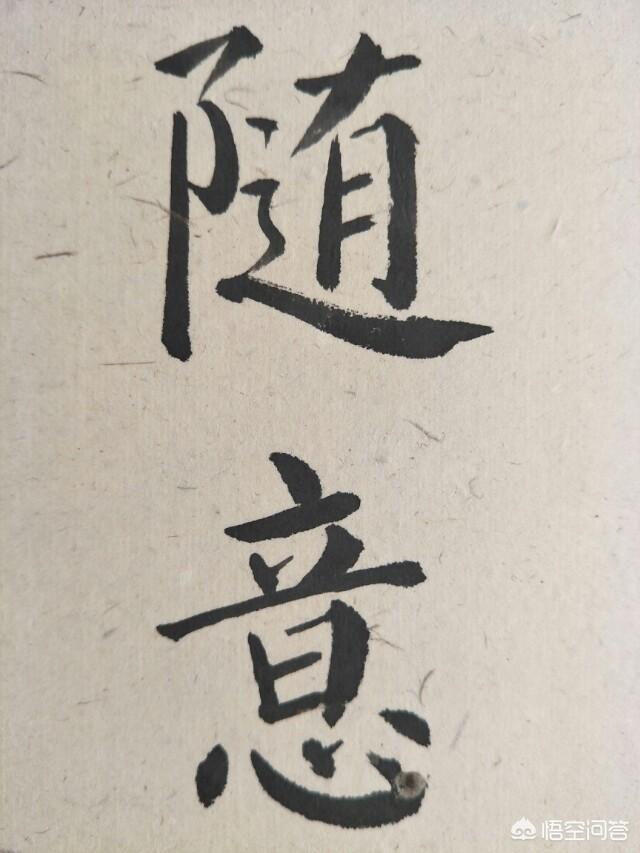 随
意
悟空问答